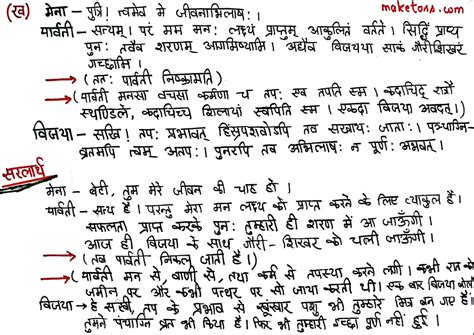 maketoss.com
(ख) मेना - पुत्रि! त्वमेव मे जीवनाभिलाषः।
पार्वती - सत्यम्। परं मम मनः लक्ष्यं प्राप्तुम् आकुलितं वर्तते। सिद्धिं प्राप्य
पुनः तवैव शरणम् आगमिष्यामि। अद्यैव विजयया साकं गौरीशिखरं
गच्छामि।
(ततः पार्वती निष्क्रामति)
(पार्वती मनसा वचसा कर्मणा च तपः एव तपति स्म। कदाचिद् रात्रौ
स्थण्डिले, कदाचिच्च शिलायां स्वपिति स्म। एकदा विजया अवदत्।)
विजया - सखि! तपः प्रभावात् हिंस्रपशवोऽपि तव सखायः जाताः। पञ्चाग्नि-
व्रतमपि त्वम् अतपः। पुनरपि तव अभिलाषः न पूर्णः अभवत्।
सरलार्थ
मेना - बेटी, तुम मेरे जीवन की चाह हो।
पार्वती - सत्य है। परन्तु मेरा मन लक्ष्य को प्राप्त करने के लिए व्याकुल है।
सफलता प्राप्त करके पुनः तुम्हारी ही शरण में आ जाऊँगी।
आज ही विजया के साथ गौरी-शिखर को चली जाऊँगी।
(तब पार्वती निकल जाती है।)
(पार्वती मन से, वाणी से, तथा कर्म से तपस्या करने लगी। कभी रात को
जमीन पर और कभी पत्थर पर सो जाया करती थी। एक बार विजया
विजया → हे सखी, तप के प्रभाव से खूंखार पशु भी तुम्हारे मित्र बन गए हैं।
तुमने पंचाग्नि व्रत भी किया है। फिर भी तुम्हारी इच्छा पूर्ण नहीं हुई।